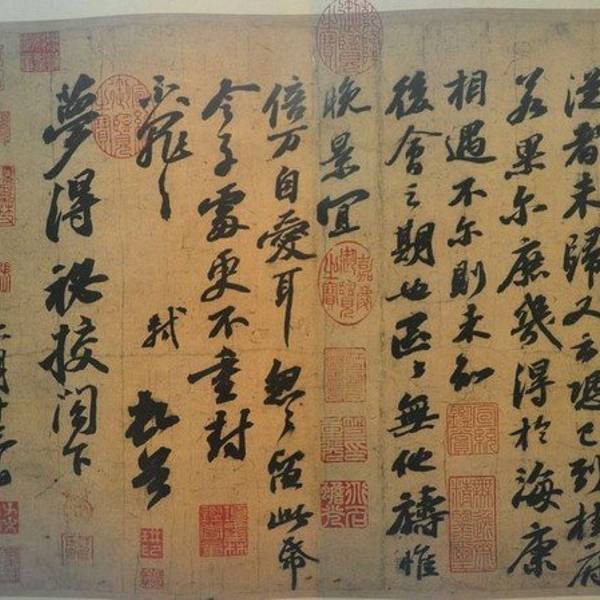 從者未歸又云恐已到桂府
若果尔庶幾得於海康
相遇不尔則未知
後會之期也區々無他禱惟
晚景宜
倍万自愛耳忽々留此帋
令子處更不重封
不罪々
軾 頓首
夢得祕校閣下
六月十三日